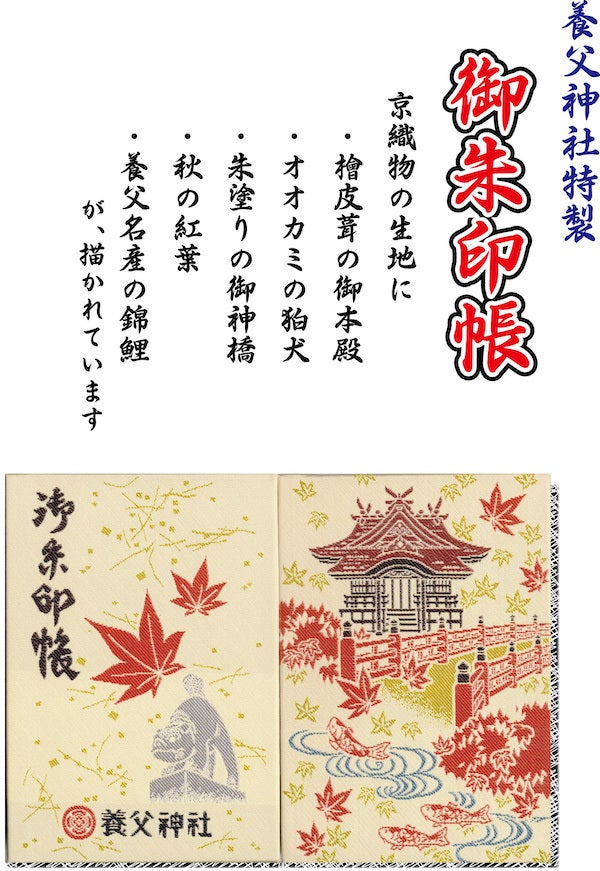 養父神社特製
御朱印帳
京織物の生地に
・檜皮葺の御本殿
・オオカミの狛犬
・朱塗りの御神橋
・秋の紅葉
・養父名産の錦鯉
が、描かれています
御朱印帳
養父神社